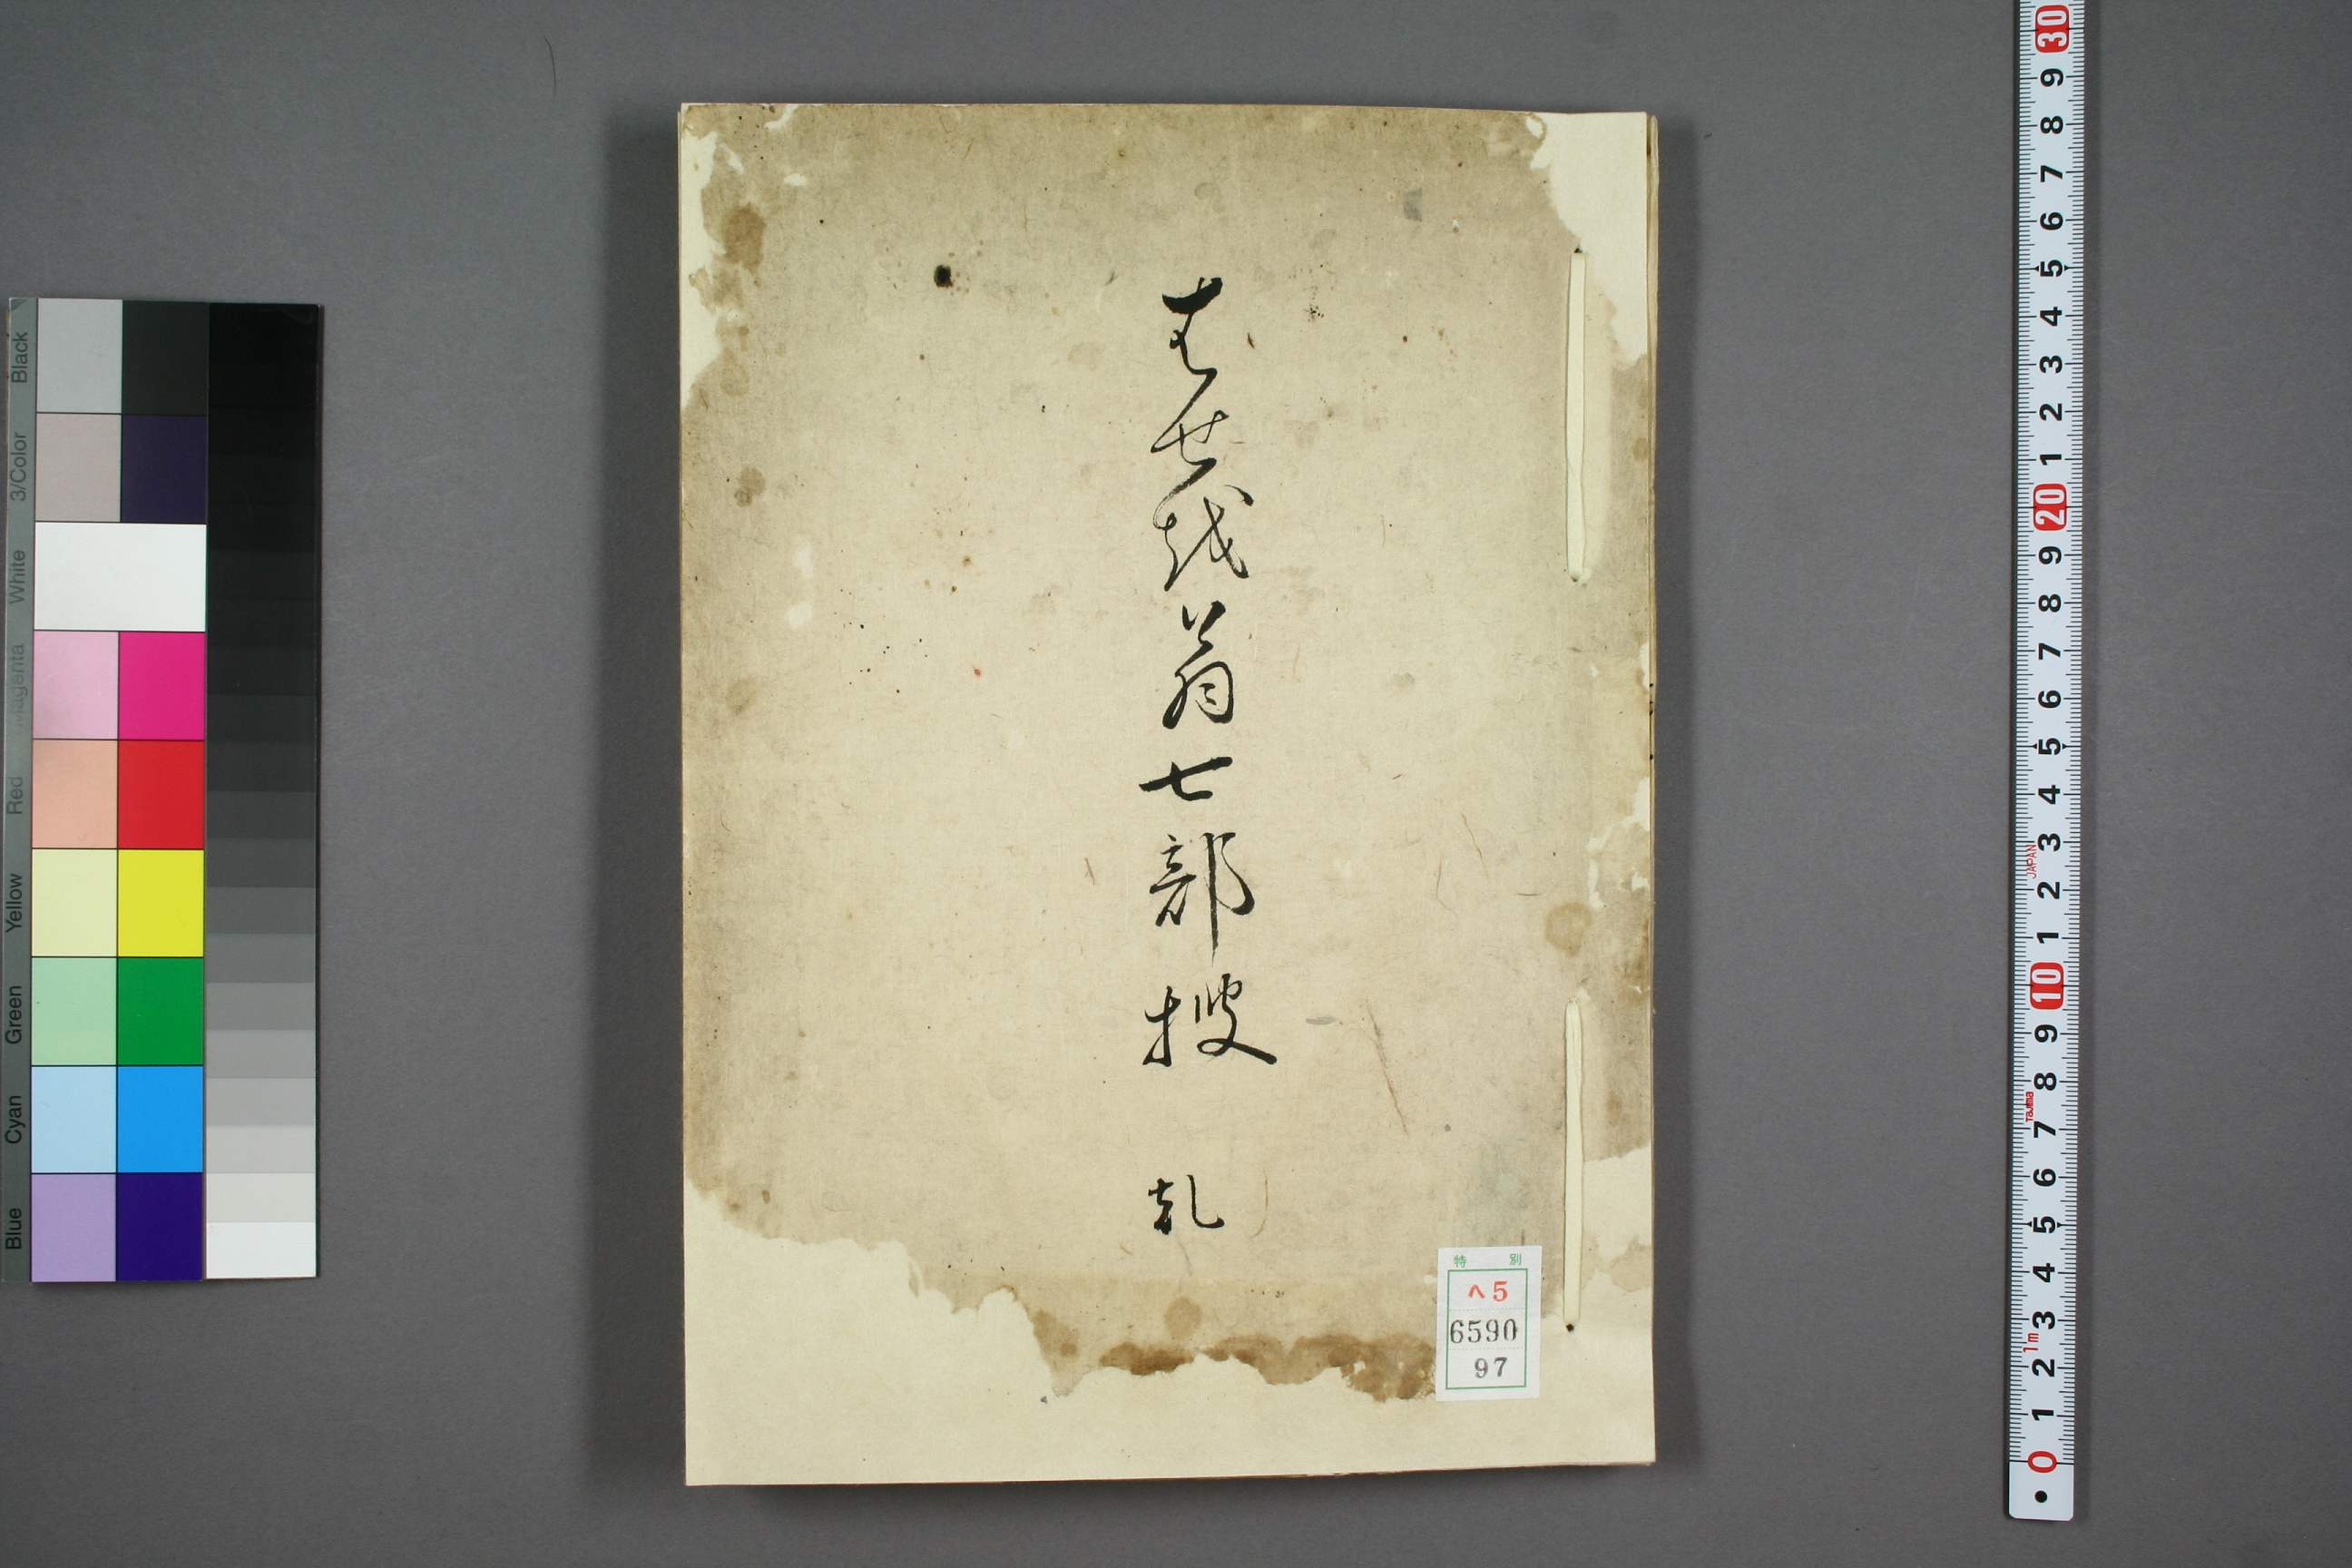 はせ越翁七部捜 乱
特別
ヘ5
6590
97
Black
3/Color
White
Magenta
Red
Yellow
Green
Cyan
Blue
30
9
8
7
6
5
4
3
2
1
20
9
8
7
6
5
4
3
JAPAN
2
1
10
9
8
Tajima
7
6
5
4
3
1m
2
1
0